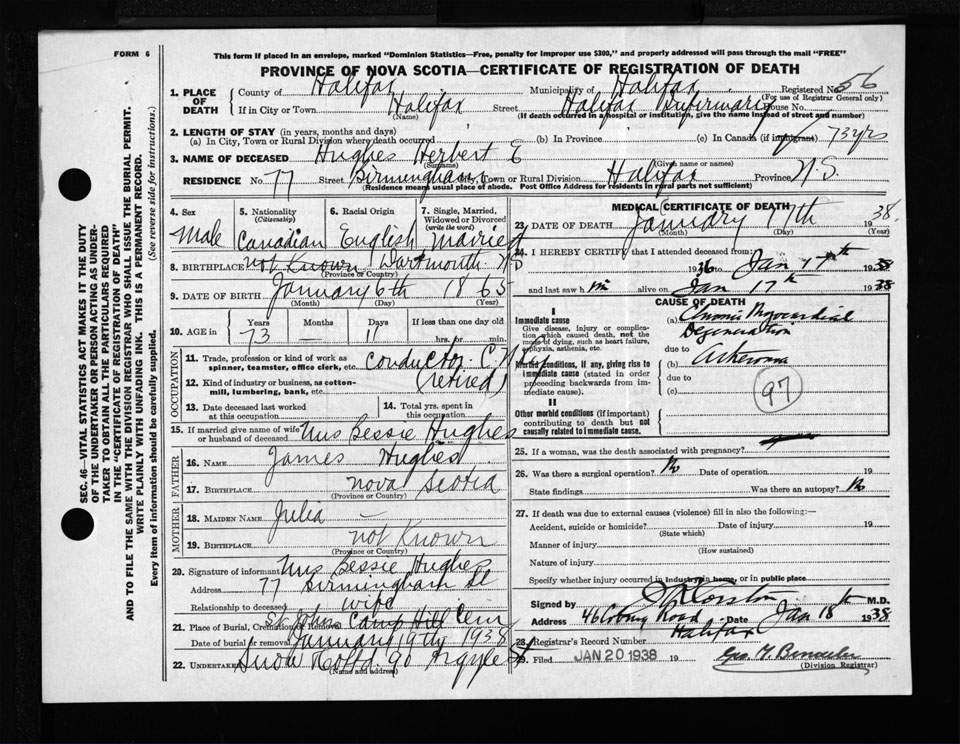 FORM 6
This form if placed in an envelope, marked "Dominion Statistics—Free, penalty for improper use $300," and properly addressed will pass through the mail "FREE"
PROVINCE OF NOVA SCOTIA—CERTIFICATE OF REGISTRATION OF DEATH
SEC. 46—VITAL STATISTICS ACT MAKES IT THE DUTY
OF THE UNDERTAKER OR PERSON ACTING AS UNDER-
TAKER TO OBTAIN ALL THE PARTICULARS REQUIRED
IN THE "CERTIFICATE OF REGISTRATION OF DEATH"
AND TO FILE THE SAME WITH THE DIVISION REGISTRAR WHO SHALL ISSUE THE BURIAL PERMIT.
WRITE PLAINLY WITH UNFADING INK. THIS IS A PERMANENT RECORD.
Every item of information should be carefully supplied. (See reverse side for instructions.)
1. PLACE OF DEATH
County of Halifax Municipality of Halifax Registered No. 56
(For use of Registrar General only)
If in City or Town Halifax Street Halifax Infirmary House No.
(Name) (If death occurred in a hospital or institution, give the name instead of street and number)
2. LENGTH OF STAY (in years, months and days)
(a) In City, Town or Rural Division where death occurred (b) In Province (c) In Canada (if immigrant) 73 yrs
3. NAME OF DECEASED Hughes Herbert E
(Surname) (Given name or names)
RESIDENCE No. 77 Street Birmingham City, Town or Rural Division Halifax Province N.S.
(Residence means usual place of abode. Post Office Address for residents in rural parts not sufficient)
4. Sex Male
5. Nationality (Citizenship) Canadian
6. Racial Origin English
7. Single, Married, Widowed or Divorced (write the word) Married
8. BIRTHPLACE not Known Dartmouth NS
(Province or Country)
9. DATE OF BIRTH January 6th 1865
(Month) (Day) (Year)
10. AGE in Years Months Days If less than one day old
73 — 11 hrs. or min.
OCCUPATION
11. Trade, profession or kind of work as spinner, teamster, office clerk, etc. Conductor C.N.R.
12. Kind of industry or business, as cotton-mill, lumbering, bank, etc. (retired)
13. Date deceased last worked at this occupation
14. Total yrs. spent in this occupation
15. If married give name of wife or husband of deceased Mrs Bessie Hughes
FATHER
16. NAME James Hughes
17. BIRTHPLACE Nova Scotia
(Province or Country)
MOTHER
18. MAIDEN NAME Julia —
19. BIRTHPLACE not Known
(Province or Country)
20. Signature of informant Mrs Bessie Hughes
Address 77 Birmingham St
Relationship to deceased wife
21. Place of Burial, Cremation or Removal St Johns Camp Hill Cem
Date of burial or removal January 19th 1938
22. UNDERTAKER Snow &amp; Co Ltd. 90 Argyle St
(Name and address)
MEDICAL CERTIFICATE OF DEATH
23. DATE OF DEATH January 17th 1938.
(Month) (Day) (Year)
24. I HEREBY CERTIFY that I attended deceased from:
1936 to Jan 17th 1938
and last saw him alive on Jan 17th 1938
CAUSE OF DEATH
I
Immediate cause
Give disease, injury or complication which caused death, not the mode of dying, such as heart failure, asphyxia, asthenia, etc.
(a) Chronic Myocardial Degeneration
due to
Morbid conditions, if any, giving rise to immediate cause (stated in order proceeding backwards from immediate cause).
(b) Atheroma
due to
(c)
97
II
Other morbid conditions (if important) contributing to death but not causally related to immediate cause.
25. If a woman, was the death associated with pregnancy?
26. Was there a surgical operation? No Date of operation 19
State findings Was there an autopsy? No
27. If death was due to external causes (violence) fill in also the following:—
Accident, suicide or homicide? Date of injury 19
(State which)
Manner of injury
(How sustained)
Nature of injury
Specify whether injury occurred in industry, in home, or in public place
Signed by M.D.
Address 46 Coburg Road Halifax Date Jan 18th 1938
28. Registrar's Record Number
29. Filed JAN 20 1938 19
(Division Registrar)